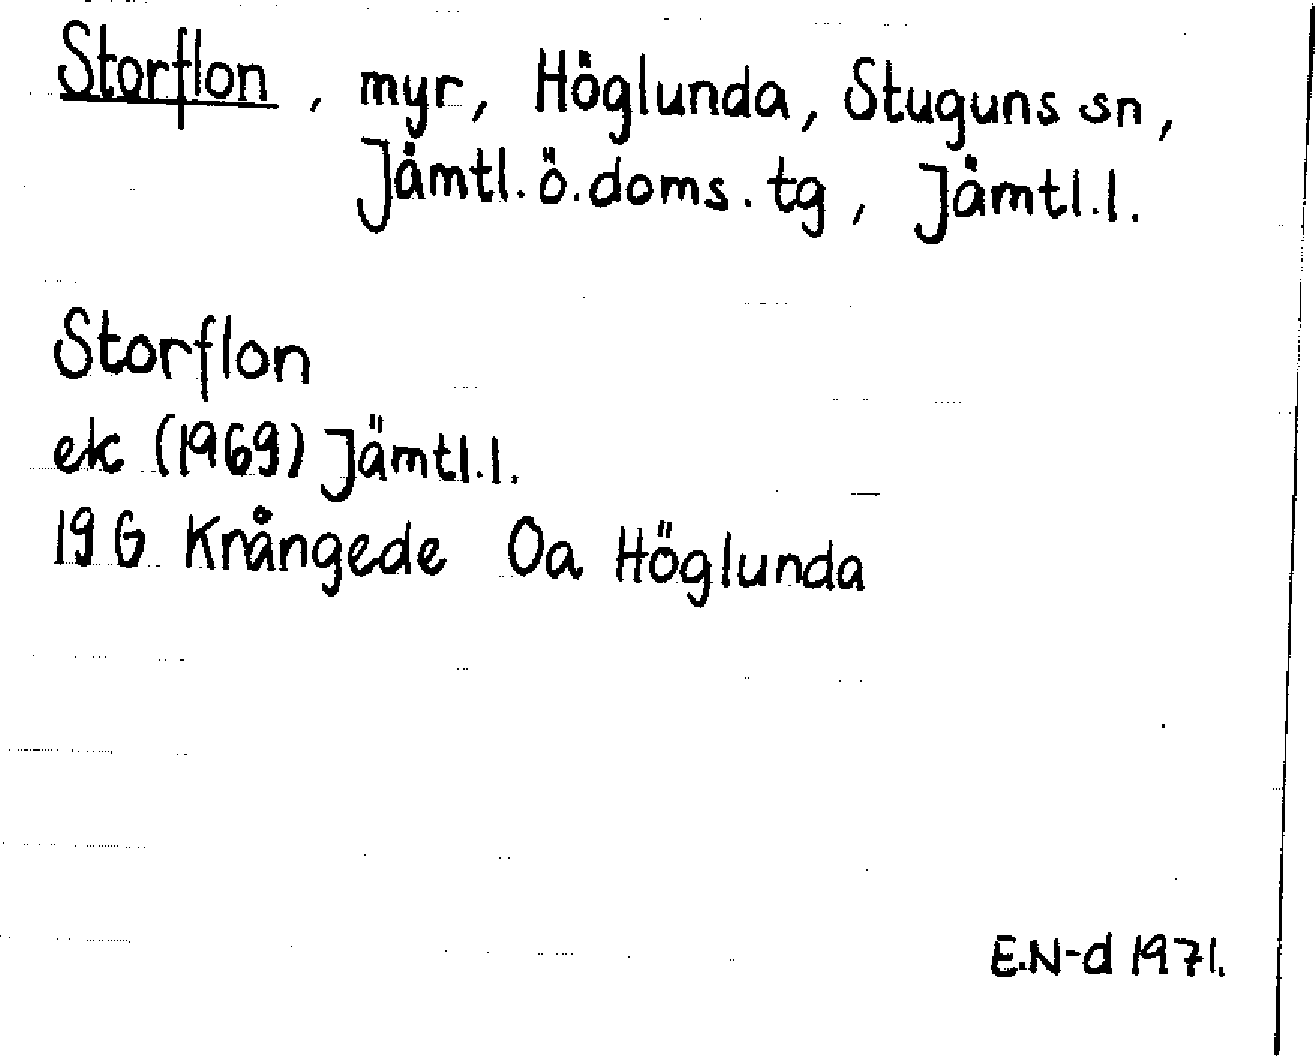 Storflon, myr, Höglunda, Stuguns sn,
Jämtl.ö.doms.tg, Jämtl.l.
Storflon
ek (1969) Jämtl.l.
19G Krångede Oa Höglunda
E.N-d 1971.